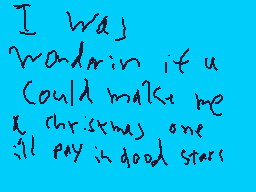 I was
wondrin if u
could make me
a christmas one
ill pay in good stars